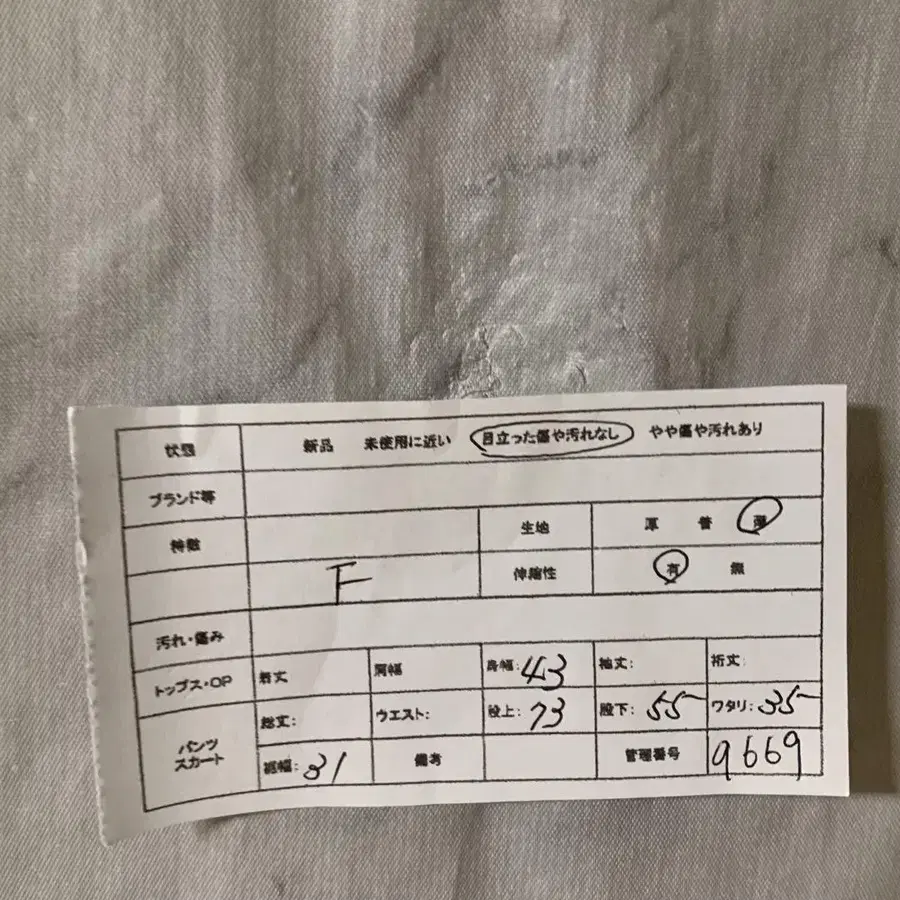 状態 新品 未使用に近い 目立った傷や汚れなし やや傷や汚れあり
ブランド等
特徴 生地 厚 普 薄
F 伸縮性 有 無
汚れ・傷み
トップス・OP 着丈 肩幅 身幅: 43 袖丈: 裄丈:
パンツ スカート 総丈: ウエスト: 股上: 73 股下: 55 ワタリ: 35
裾幅: 31 備考 管理番号 9669